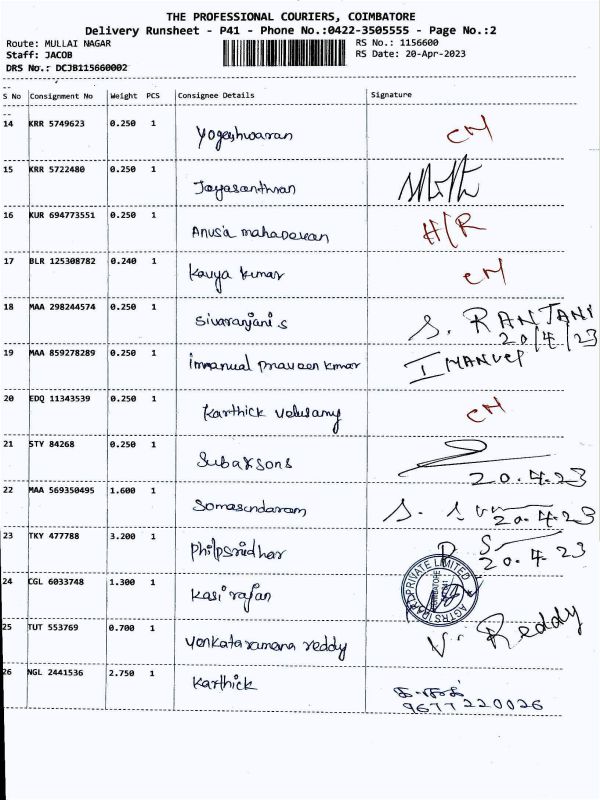 THE PROFESSIONAL COURIERS, COIMBATORE
Delivery Runsheet - P41 - Phone No.:0422-3505555 - Page No.:2
Route: MULLAI NAGAR RS No.: 1156600
Staff: JACOB RS Date: 20-Apr-2023
DRS No.: DCJB115660002
S No Consignment No Weight PCS Consignee Details Signature
14 KRR 5749623 0.250 1 Yogeshwaran CM
15 KRR 5722480 0.250 1 Jayasanthran
16 KUR 694773551 0.250 1 Anusa mahadevan H/R
17 BLR 125308782 0.240 1 Kavya kumar CM
18 MAA 298244574 0.250 1 Sivaranjani s S. RANJANI
20/4/23
19 MAA 859278289 0.250 1 immanual praveen kumar IMANUEL
20 EDQ 11343539 0.250 1 Karthick velusamy CM
21 STY 84268 0.250 1 Suba & sons
20.4.23
22 MAA 569350495 1.600 1 Somasundaram
20.4.23
23 TKY 477788 3.200 1 Philpsridhar P S
20.4 23
24 CGL 6033748 1.300 1 Kasi rajan PRIVATE LIMITED
25 TUT 553769 0.700 1 Venkataramana reddy V. Reddy
26 NGL 2441536 2.750 1 Karthick
9677220026